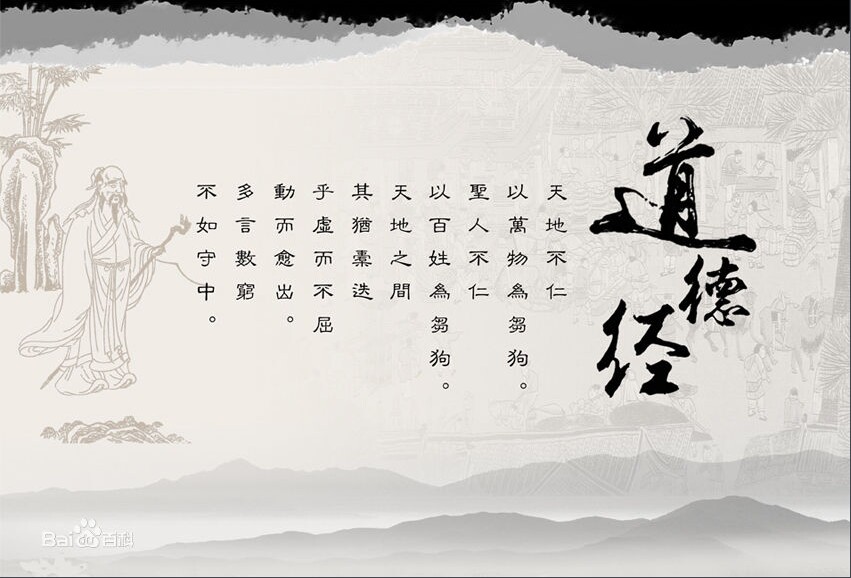 道德经
天地不仁
以萬物為芻狗。
聖人不仁
以百姓為芻狗。
天地之間
其猶橐迭
乎虛而不屈
動而愈出。
多言數窮
不如守中。
Bai百科